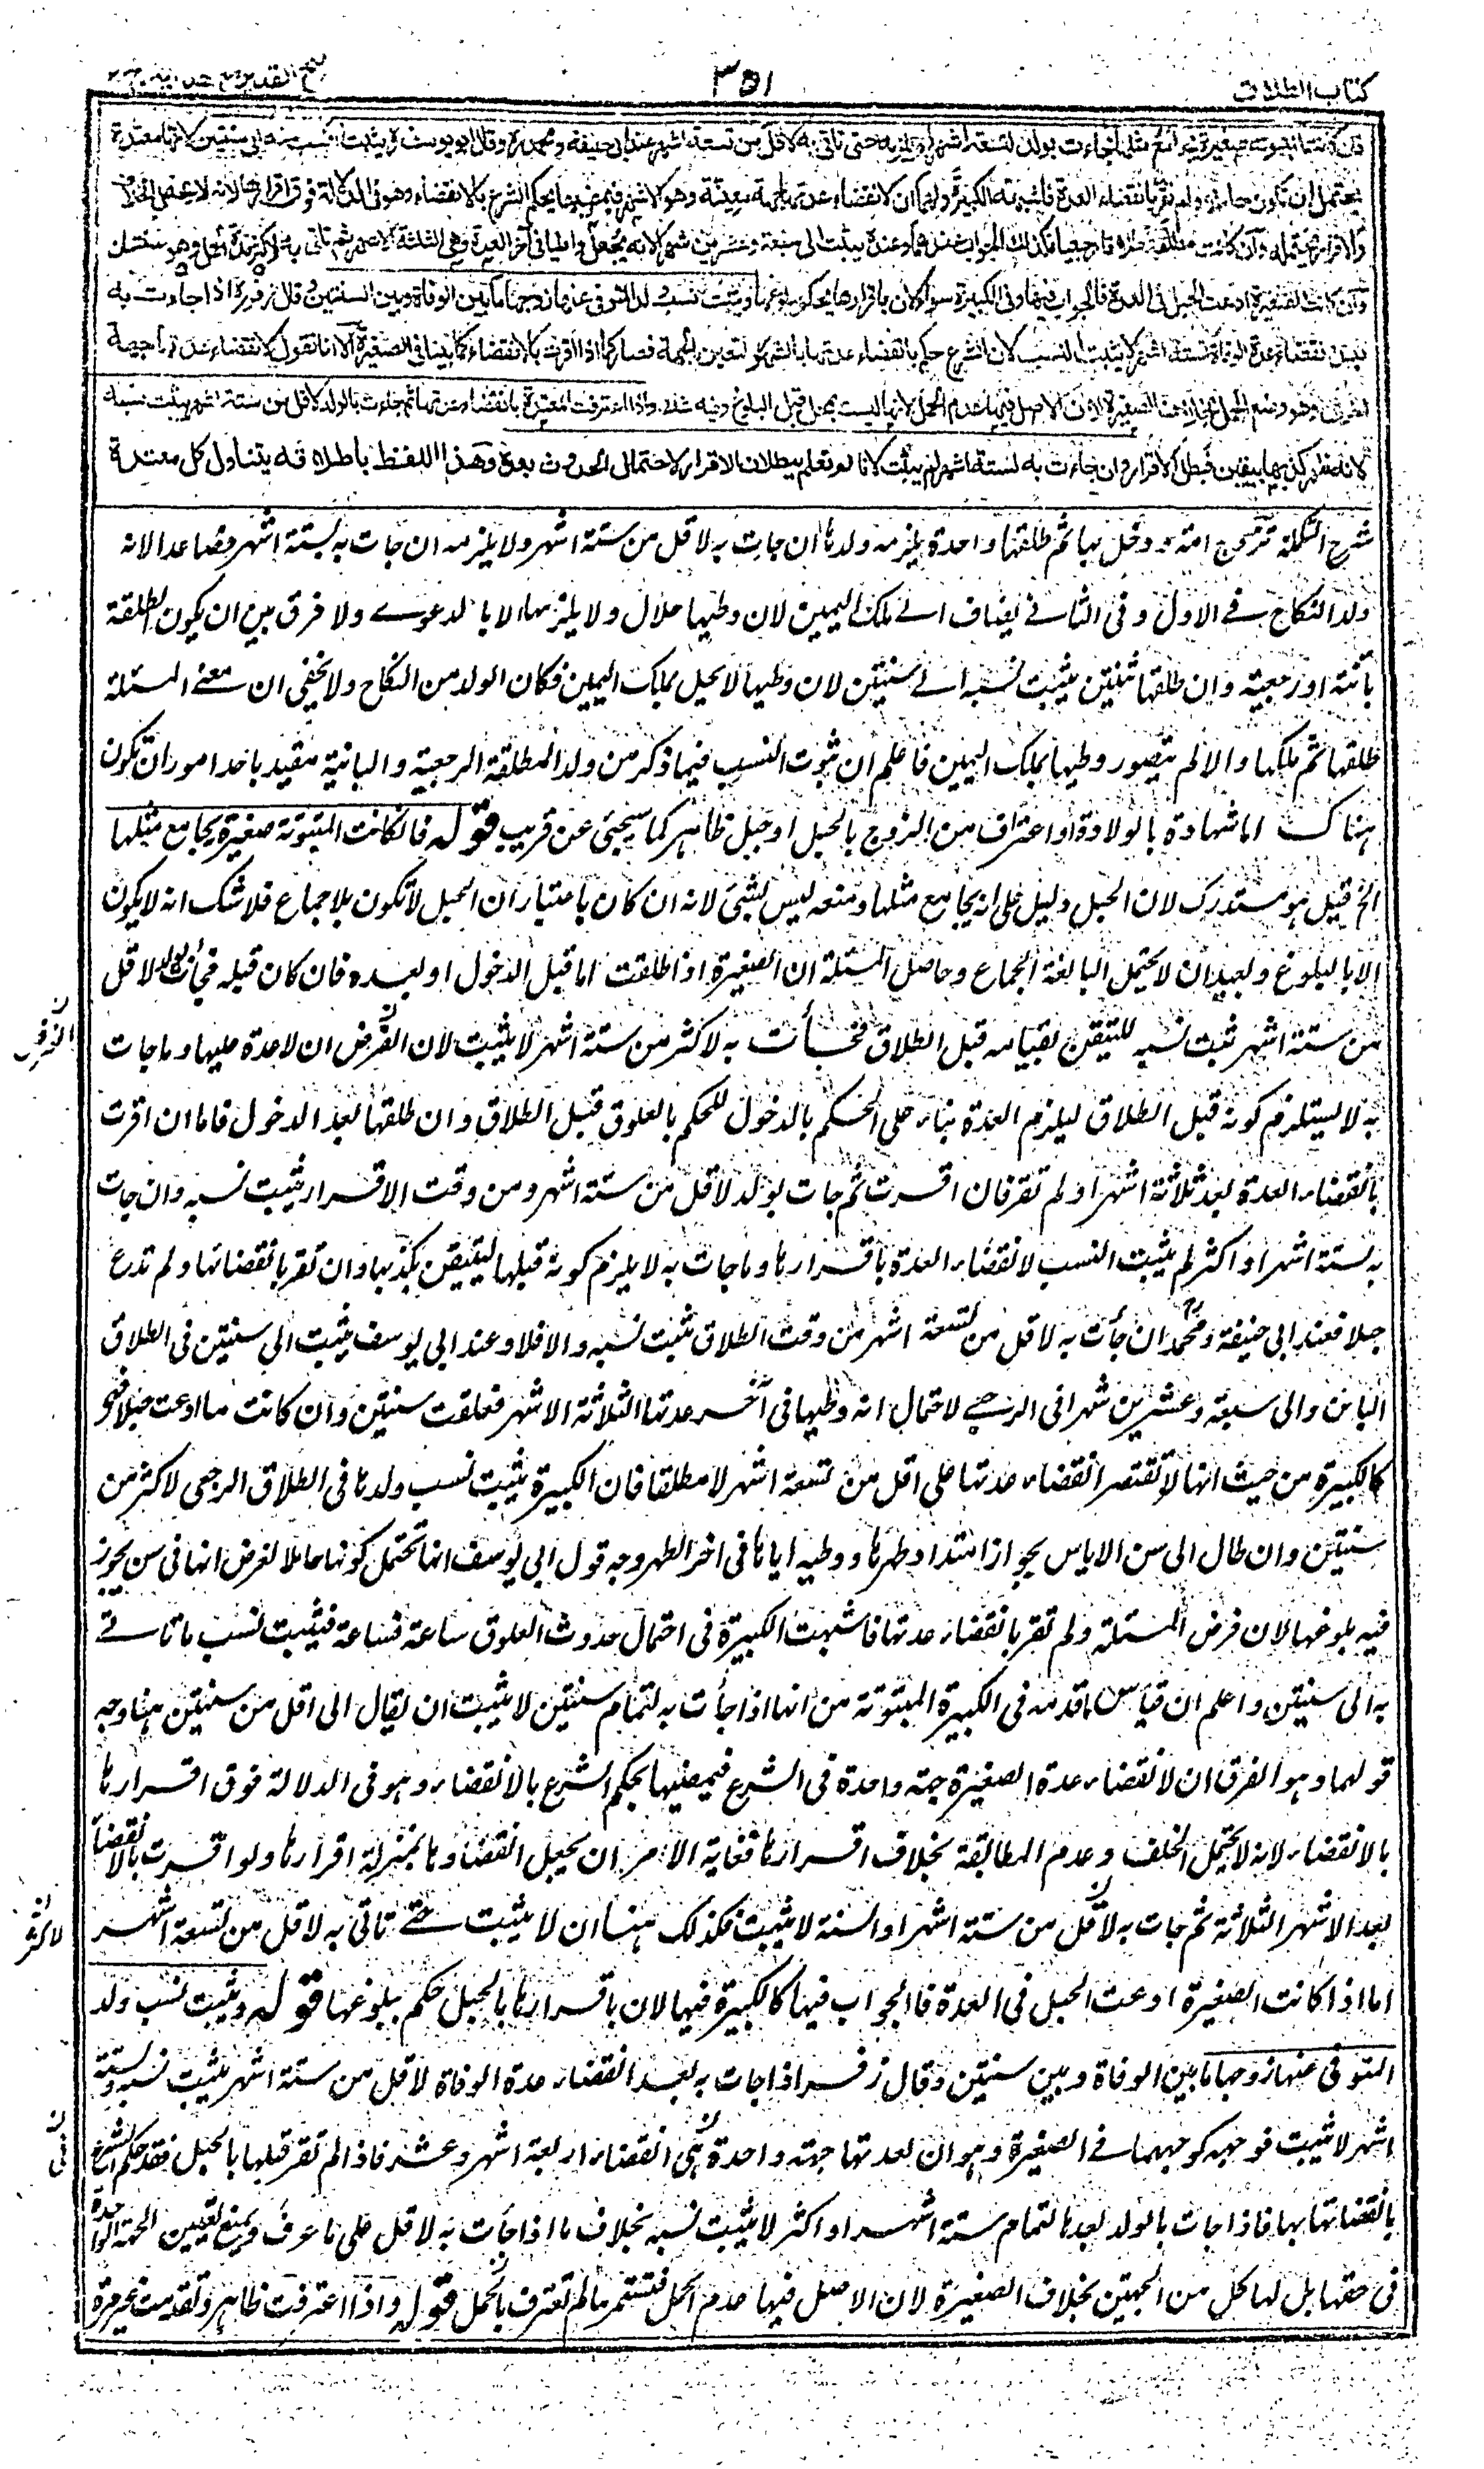 كتاب الطلاق
٣٥١
فتح القدير مع هدايه
فان كانت المبتوتة صغيرة يجامع مثلها فجاءت بولد لتسعة اشهر لم يلزمه حتى تاتى به لاقل من تسعة اشهر عند ابى حنيفة ومحمد رح وقال ابو يوسف رح يثبت النسب منه الى سنتين لانها معتدة
يحتمل ان تكون حاملا ولم تقر بانقضاء العدة فاشبهت الكبيرة ولهما ان لانقضاء عدتها جهة معينة وهو الاشهر فبمضيها يحكم الشرع بالانقضاء وهو فى الدلالة فوق اقرارها لانه لا يحتمل الخلاف
والاقرار يحتمله وان كانت مطلقة طلاقا رجعيا فكذلك الجواب عندهما وعنده يثبت الى سبعة وعشرين شهرا لانه يجعل واطيا فى آخر العدة وهى الثلثة الاشهر ثم تاتى به لاكثر مدة الحمل وهو سنتان
وان كانت الصغيرة ادعت الحبل فى العدة فالجواب فيها وفى الكبيرة سواء لان باقرارها يحكم ببلوغها ويثبت نسب ولد المتوفى عنها زوجها ما بين الوفاة وبين السنتين وقال زفر رح اذا جاءت به
بعد انقضاء عدة الوفاة لستة اشهر لا يثبت النسب لان الشرع حكم بانقضاء عدتها بالشهور لتعين الجهة فصار كما اذا اقرت بالانقضاء كما بينا فى الصغيرة الا انا نقول لانقضاء عدتها جهة
اخرى وهو وضع الحمل بخلاف الصغيرة لان الاصل فيها عدم الحمل لانها ليست بمحل قبل البلوغ وفيه شك واذا اعترفت المعتدة بانقضاء عدتها ثم جاءت بالولد لاقل من ستة اشهر يثبت نسبه
لانه ظهر كذبها بيقين فبطل الاقرار وان جاءت به لستة اشهر لم يثبت لانا لم نعلم ببطلان الاقرار لاحتمال الحدوث بعده وهذا اللفظ باطلاقه يتناول كل معتدة
شرح التكملة تزوج امة ودخل بها ثم طلقها واحدة يلزمه ولدها ان جاءت به لاقل من ستة اشهر ولا يلزمه ان جات به لستة اشهر فصاعدا لانه
ولد النكاح فے الاول وفى الثانے يضاف الے ملك اليمين لان وطيها حلال ولا يلزمها الا بالدعوے ولا فرق بين ان يكون الطلقة
بائنة او رجعية وان طلقها ثنتين يثبت نسبه الے سنتين لان وطيها لا يحل بملك اليمين فكان الولد من النكاح ولا يخفى ان معنے المسئلة
طلقها ثم ملكها والا لم يتصور وطيها بملك اليمين فاعلم ان ثبوت النسب فيما ذكر من ولد المطلقة الرجعية والبانية مقيد باحد امور ان تكون
هناك اما شهادة بالولادة او اعتراف من الزوج بالحبل او حبل ظاهر كما سيجئ عن قريب قوله فان كانت المبتوتة صغيرة يجامع مثلها
الخ قيل هو مستدرك لان الحبل دليل على انه يجامع مثلها ومنعه ليس بشئ لانه ان كان باعتبار ان الحبل لا تكون بلا جماع فلا شك انه لا يكون
الا بالبلوغ وبعيد ان لا يحتمل البالغة الجماع وحاصل المسئلة ان الصغيرة اذا طلقت اما قبل الدخول او بعده فان كان قبله فجأت بولد لاقل
من ستة اشهر ثبت نسبه للتيقن بقيامه قبل الطلاق فجأت به لاكثر من ستة اشهر لا يثبت لان الفرض ان لا عدة عليها وما جات
به لا يستلزم كونه قبل الطلاق ليلزم العدة بناء على الحكم بالدخول للحكم بالعلوق قبل الطلاق وان طلقها بعد الدخول فاما ان اقرت
بانقضاء العدة بعد ثلاثة اشهر او لم تقر فان اقرت ثم جات بولد لاقل من ستة اشهر ومن وقت الاقرار يثبت نسبه وان جات
به لستة اشهر او اكثر لم يثبت النسب لانقضاء العدة باقرارها وما جات به لا يلزم كونه قبلها ليتيقن بكذبها وان تقر بانقضائها ولم تدع
حبلا فعند ابى حنيفة ومحمد رح ان جأت به لاقل من تسعة اشهر من وقت الطلاق ثبت نسبه والا فلا وعند ابى يوسف يثبت الى سنتين فى الطلاق
البائن والى سبعة وعشرين شهرا فى الرجعے لاحتمال انه وطيها فى آخر عدتها الثلاثة الاشهر فعلقت سنتين وان كانت ما ادعت حبلا فهى
كالكبيرة من حيث انها لا تقتصر انقضاء عدتها على اقل من تسعة اشهر لا مطلقا فان الكبيرة يثبت نسب ولدها فى الطلاق الرجعى لاكثر من
سنتين وان طال الى سن الاياس بجواز امتداد طهرها ووطيه اياها فى اخر الطهر وجه قول ابى يوسف انها تحتمل كونها حاملا لفرض انها فى سن يجوز
فيه بلوغها لان فرض المسئلة ولم تقر بانقضاء عدتها فاشبهت الكبيرة فى احتمال حدوث العلوق ساعة فساعة فيثبت نسب ما تاتے
به الى سنتين واعلم ان قياس ما قدمه فى الكبيرة المبتوتة من انها اذا جأت به لتمام سنتين لا يثبت ان يقال الى اقل من سنتين هنا وجه
قولهما وهو الفرق ان لانقضاء عدة الصغيرة جهة واحدة فى الشرع فبمضيها يحكم الشرع بالانقضاء وهو فى الدلالة فوق اقرارها
بالانقضاء لانه لا يحتمل الخلف وعدم المطابقة بخلاف اقرارها فغاية الامر ان يجعل انقضاؤها بمنزلة اقرارها ولو اقرت بالانقضاء
بعد الاشهر الثلاثة ثم جات به لاقل من ستة اشهر او السنة لا يثبت فكذلك هنا ان لا يثبت حتے تاتى به لاقل من تسعة اشهر
اما اذا كانت الصغيرة ادعت الحبل فى العدة فالجواب فيها كالكبيرة فيها لان باقرارها بالحبل حكم ببلوغها قوله ويثبت نسب ولد
المتوفى عنها زوجها ما بين الوفاة وبين سنتين وقال زفر اذا جات به بعد انقضاء عدة الوفاة لاقل من ستة اشهر يثبت نسبه ولستة
اشهر لا يثبت فوجهه كوجههما فے الصغيرة وهو ان لعدتها جهة واحدة هى انقضاء اربعة اشهر وعشر فاذا لم تقر قبلها بالحبل فقد حكم الشرع
بانقضائها بها فاذا جات بالولد بعدها لتمام ستة اشهر او اكثر لا يثبت نسبه بخلاف ما اذا جأت به لاقل على ما عرف ويمنع تعيين الجهة الواحدة
فى حقها بل لها كل من الجهتين بخلاف الصغيرة لان الاصل فيها عدم الحمل فتستمر ما لم تعترف بالحمل قوله واذا اعترفت ظاهر وتقدمت غير مرة